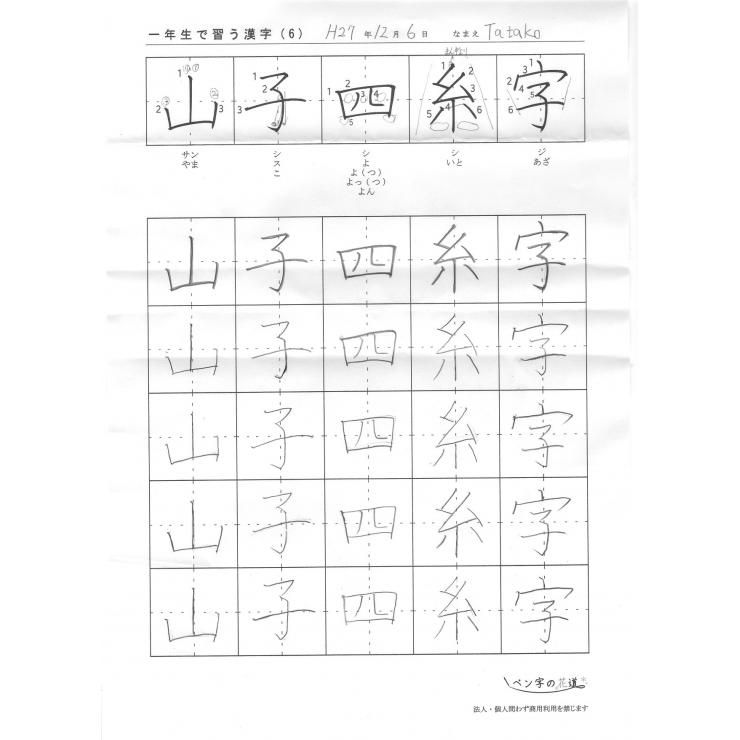 一年生で習う漢字(6) H27年12月6日 なまえ Tatako
山 子 四 糸 字
サン シ シ シ ジ
やま ス よ いと あざ
こ よ(つ)
よっ(つ)
よん
山 子 四 糸 字
山 子 四 糸 字
山 子 四 糸 字
山 子 四 糸 字
山 子 四 糸 字
ペン字の花道
法人・個人問わず商用利用を禁じます